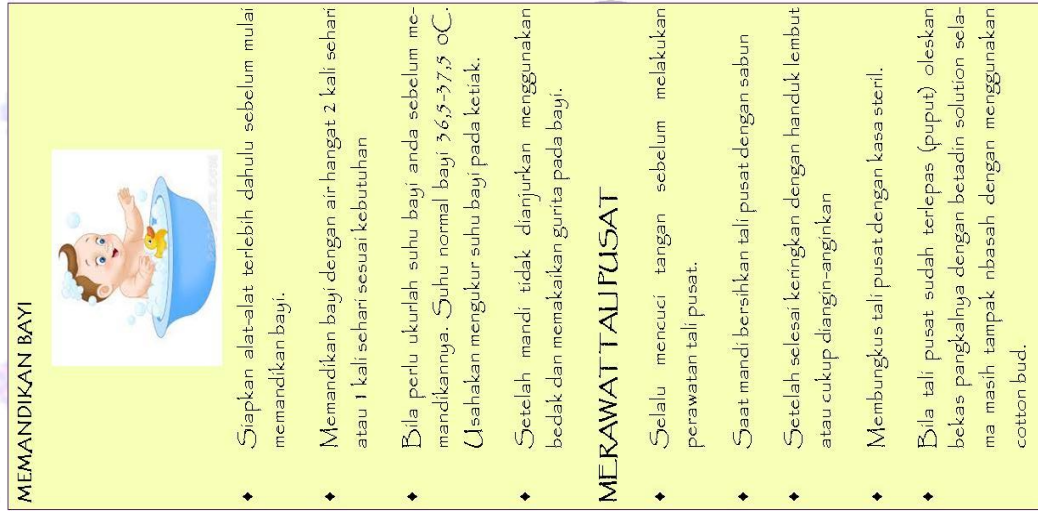 MEMANDIKAN BAYI
♦ Siapkan alat-alat terlebih dahulu sebelum mulai
memandikan bayi.
♦ Memandikan bayi dengan air hangat 2 kali sehari
atau 1 kali sehari sesuai kebutuhan
♦ Bila perlu ukurlah suhu bayi anda sebelum me-
mandikannya. Suhu normal bayi 36,5-37,5 oC.
Usahakan mengukur suhu bayi pada ketiak.
♦ Setelah mandi tidak dianjurkan menggunakan
bedak dan memakaikan gurita pada bayi.
MERAWATTALIPUSAT
♦ Selalu mencuci tangan sebelum melakukan
perawatan tali pusat.
♦ Saat mandi bersihkan tali pusat dengan sabun
♦ Setelah selesai keringkan dengan handuk lembut
atau cukup diangin-anginkan
♦ Membungkus tali pusat dengan kasa steril.
♦ Bila tali pusat sudah terlepas (puput) oleskan
bekas pangkalnya dengan betadin solution sela-
ma masih tampak nbasah dengan menggunakan
cotton bud.